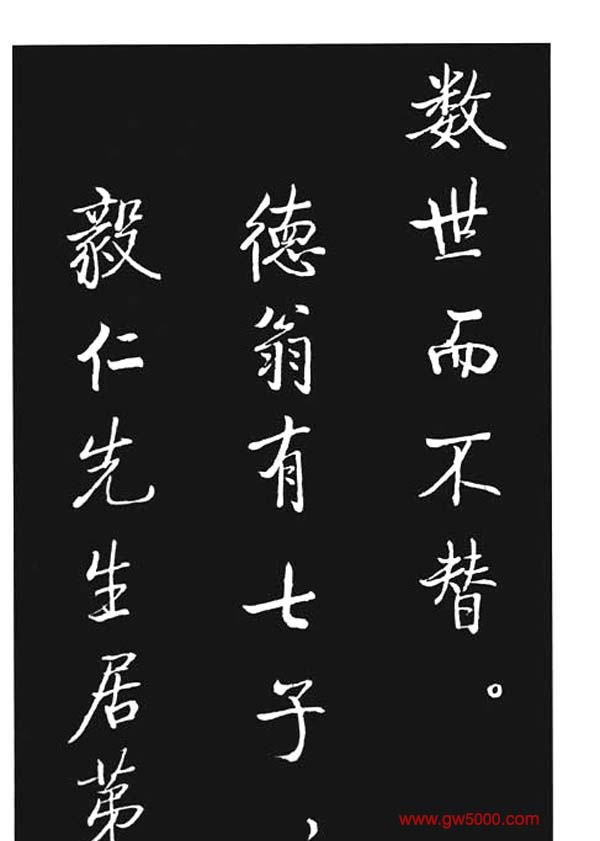 数世而不替。
德翁有七子，
毅仁先生居第
www.gw5000.com